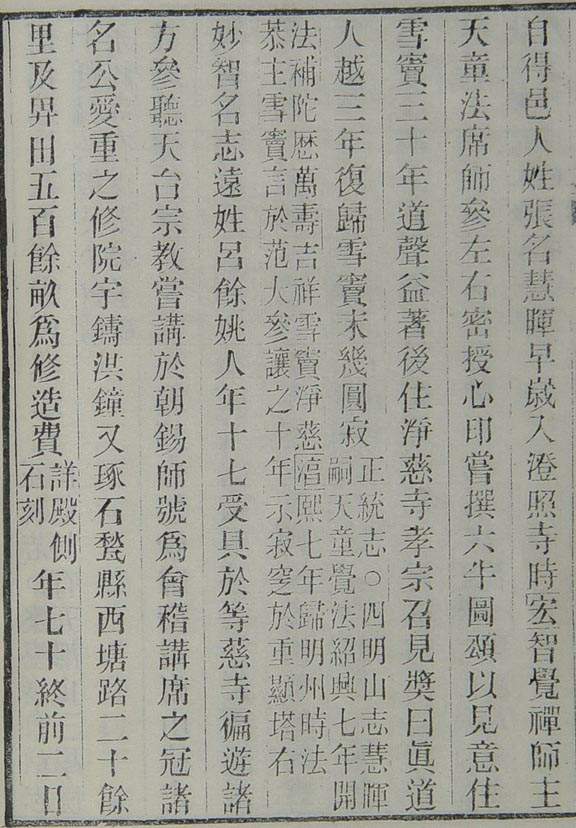 自得邑人姓張名慧暉早歲入澄照寺時宏智覺禪師主
天童法席師參左右密授心印嘗撰六牛圖頌以見意住
雪竇三十年道聲益著後住淨慈寺孝宗召見奬曰眞道
人越三年復歸雪竇未幾圓寂
正統志○四明山志慧暉
嗣天童覺法紹興七年開
法補陀歷萬壽吉祥雪竇淨慈淳熙七年歸明州時法
恭主雪竇言於范大參讓之十年示寂窆於重顯塔右
妙智名志遠姓呂餘姚人年十七受具於等慈寺徧遊諸
方參聽天台宗教嘗講於朝錫師號爲會稽講席之冠諸
名公愛重之修院宇鑄洪鐘又琢石甃縣西塘路二十餘
里及畀田五百餘畝爲修造費
詳殿側
石刻
年七十終前二日